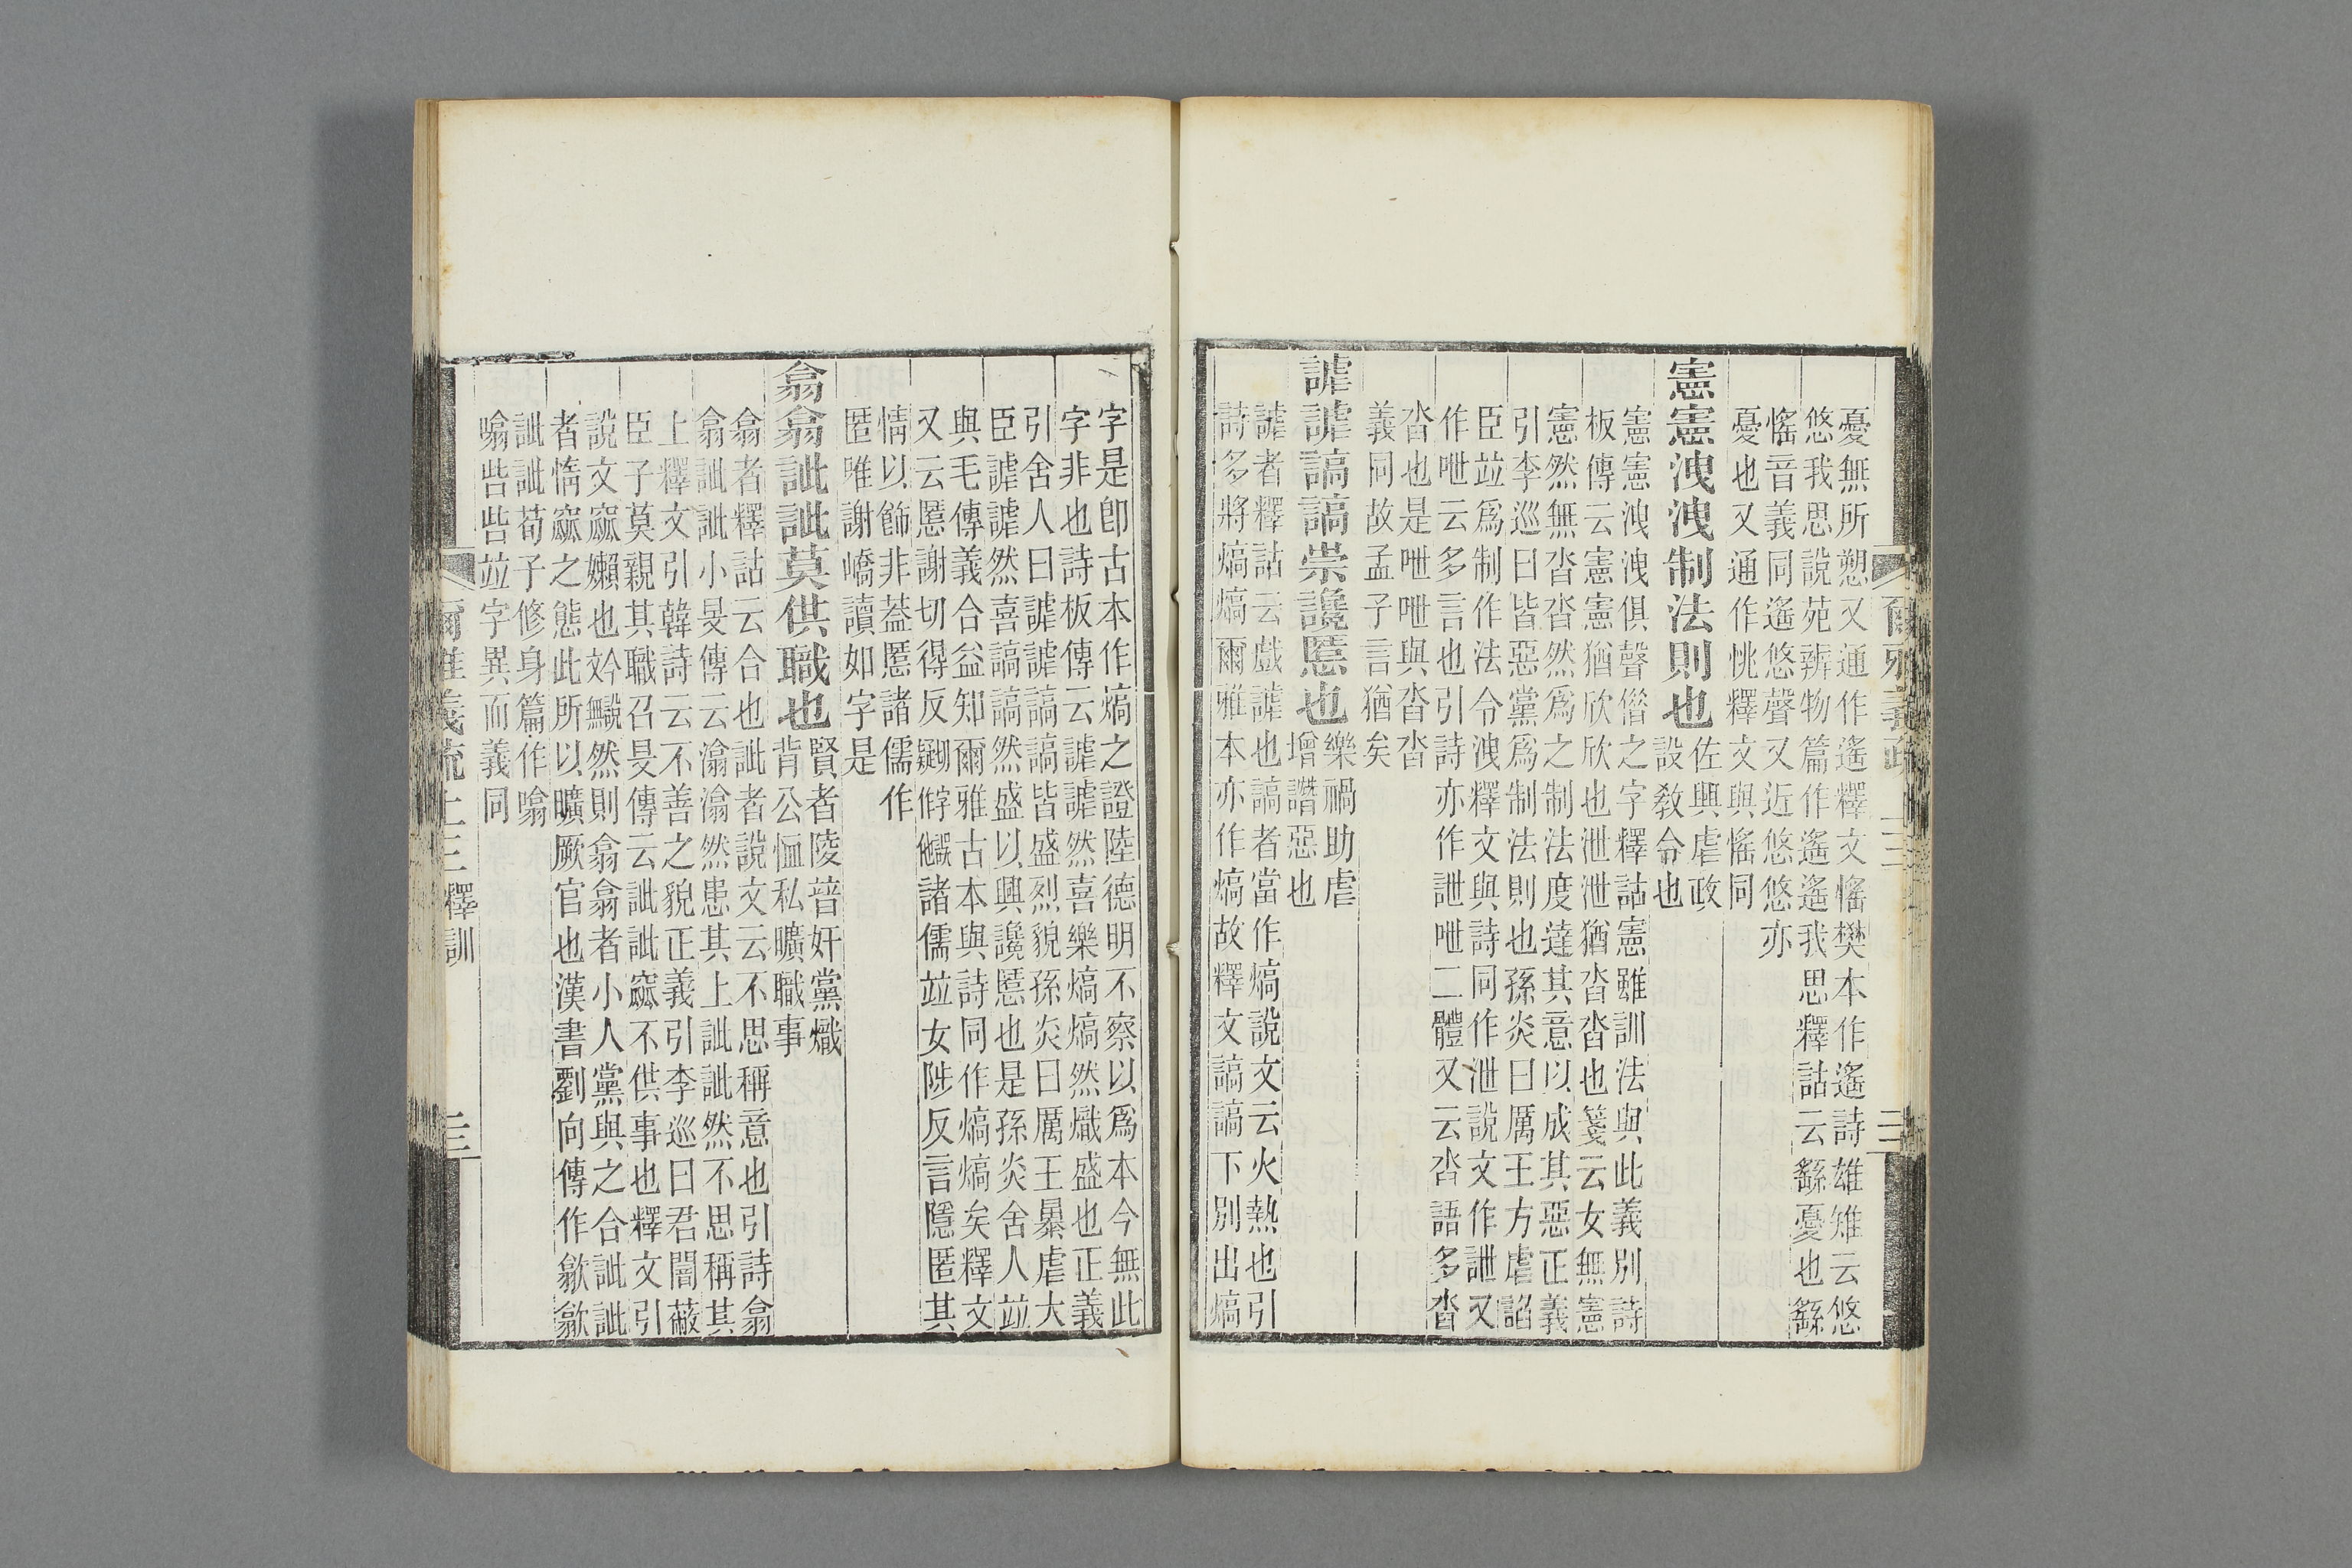 憂無所愬又通作遙釋文愮樊本作遙詩雄雉云悠
悠我思說苑辨物篇作遙遙我思釋詁云繇憂也繇
愮音義同遙悠聲又近悠悠亦
憂也又通作恌釋文與愮同
憲憲洩洩制法則也
佐興虐政
設敎令也
憲憲洩洩俱聲僣之字釋詁憲雖訓法與此義別詩
板傳云憲憲猶欣欣也泄泄猶沓沓也箋云女無憲
憲然無沓沓然爲之制法度達其意以成其惡正義
引李巡曰皆惡黨爲制法則也孫炎曰厲王方虐諂
臣竝爲制作法令洩釋文與詩同作泄說文作詍又
作呭云多言也引詩亦作詍呭二體又云沓語多沓
沓也是呭呭與沓沓
義同故孟子言猶矣
謔謔謞謞崇讒慝也
樂禍助虐
增譖惡也
謔者釋詁云戲謔也謞者當作熇說文云火熱也引
詩多將熇熇爾雅本亦作熇故釋文謞謞下別出熇
爾雅義疏
字是卽古本作熇之證陸德明不察以爲本今無此
字非也詩板傳云謔謔然喜樂熇熇然熾盛也正義
引舍人曰謔謔謞謞皆盛烈貌孫炎曰厲王暴虐大
臣謔謔然喜謞謞然盛以興讒慝也是孫炎舍人竝
與毛傳義合益知爾雅古本與詩同作熇熇矣釋文
又云慝謝切得反諸儒竝女陟反言隱匿其
情以飾非葢慝諸儒作
匿唯謝嶠讀如字是
翕翕訿訿莫供職也
賢者陵替奸黨熾
背公恤私曠職事
翕者釋詁云合也訿者說文云不思稱意也引詩翕
翕訿訿小旻傳云潝潝然患其上訿訿然不思稱其
上釋文引韓詩云不善之貌正義引李巡曰君闇蔽
臣子莫親其職召旻傳云訿訿窳不供事也釋文引
說文窳嬾也然則翕翕者小人黨與之合訿訿
者惰窳之態此所以曠厥官也漢書劉向傳作歙歙
訿訿荀子修身篇作噏
噏呰呰竝字異而義同
爾雅義疏上三釋訓